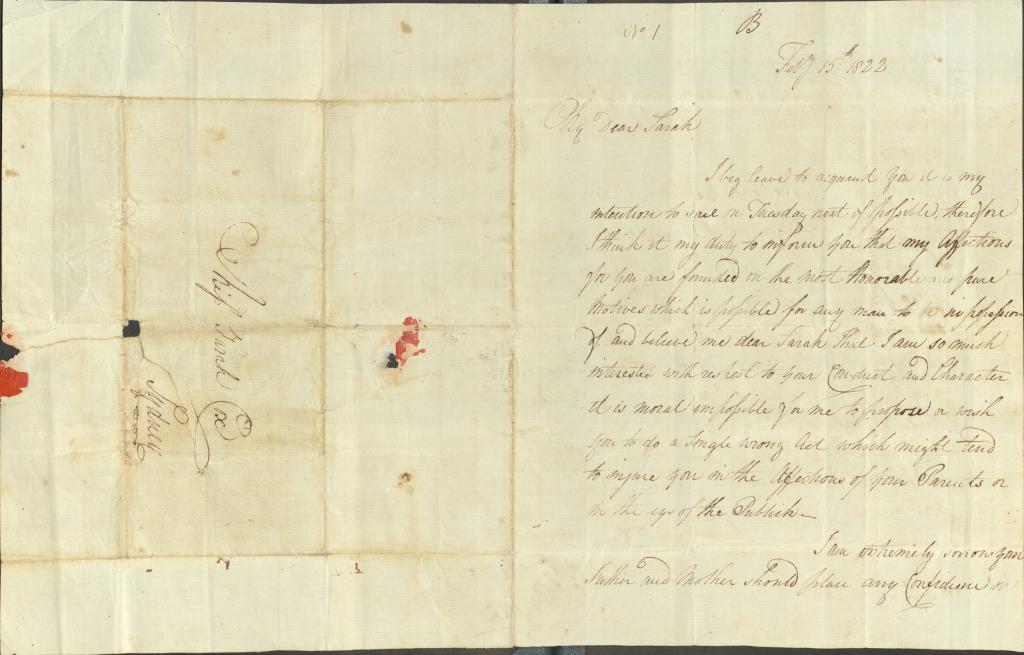 No 1
B
Feby 15th 1822
My Dear Sarah
I beg leave to acquaint you it is my
intention to sail on Tuesday next if possible, therefore
I think it my duty to inform you that my Affections
for you are founded on the most Honorable and pure
Motives which is possible for any man to be in possession
of and believe me dear Sarah that I am so much
interested with respect to your Conduct and Character
it is moral impossible for me to propose or wish
you to do a single wrong Act which might tend
to injure you in the Affections of your Parents or
in the eys of the Publick—
I am extremely sorrow your
Father and Mother should place any Confidence in
Miss Sarah Cox
Sydney